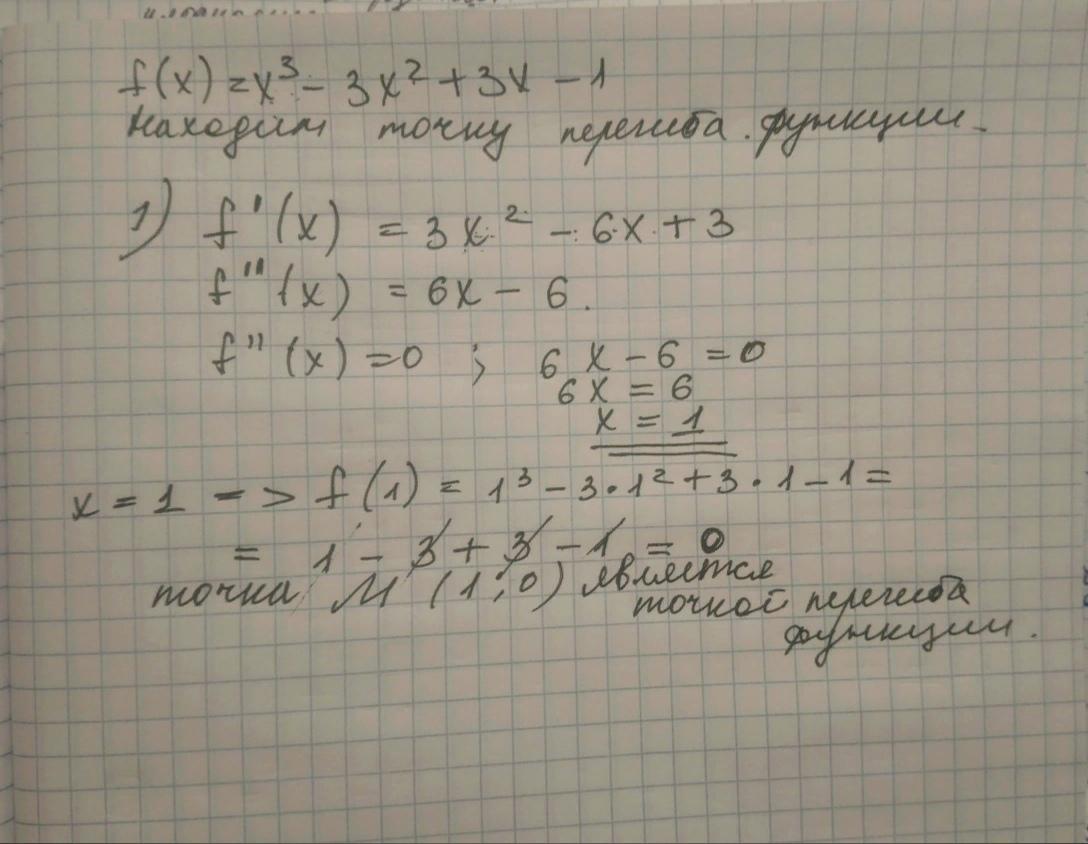 f(x) = x³ - 3x² + 3x - 1
Находим точку перегиба функции.
1) f'(x) = 3x² - 6x + 3
f''(x) = 6x - 6.
f''(x) = 0 ; 6x - 6 = 0
6x = 6
x = 1
x = 1 => f(1) = 1³ - 3·1² + 3·1 - 1 =
= 1 - 3 + 3 - 1 = 0
точка M (1;0) является
точкой перегиба
функции.